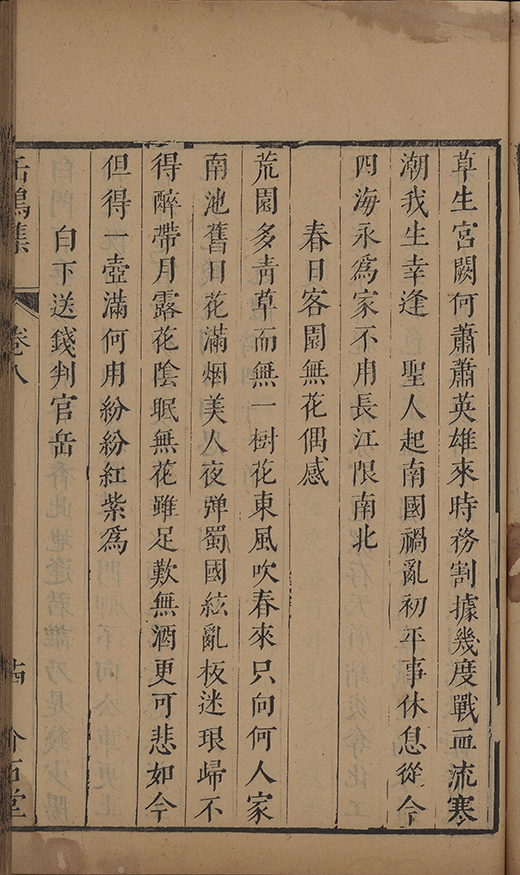 草生宮闕何蕭蕭英雄來時務割據幾度戰血流寒
潮我生幸逢　聖人起南國禍亂初平事休息從今
四海永爲家不用長江限南北
春日客園無花偶感
荒園多青草而無一樹花東風吹春來只向何人家
南池舊日花滿烟美人夜弹蜀國絃亂板迷琅歸不
得醉帶月露花陰眠無花雖足歎無酒更可悲如今
但得一壺滿何用紛紛紅紫爲
白下送錢判官岳
鳴集
卷八
介石堂